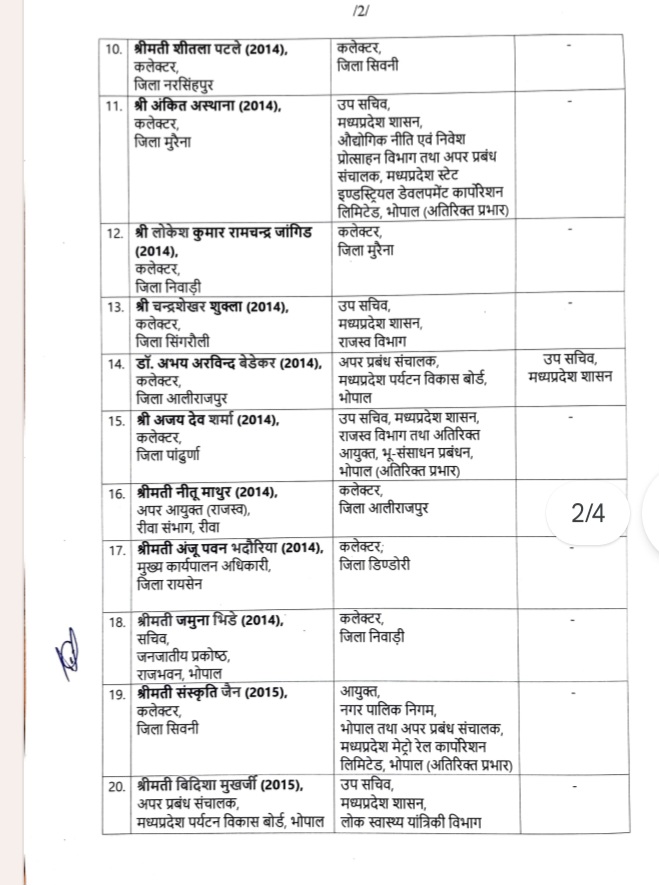 /2/
10. श्रीमती शीतला पटले (2014),
कलेक्टर,
जिला नरसिंहपुर
कलेक्टर,
जिला सिवनी
-
11. श्री अंकित अस्थाना (2014),
कलेक्टर,
जिला मुरैना
उप सचिव,
मध्यप्रदेश शासन,
औद्योगिक नीति एवं निवेश
प्रोत्साहन विभाग तथा अपर प्रबंध
संचालक, मध्यप्रदेश स्टेट
इण्डस्ट्रियल डेवलपमेंट कार्पोरेशन
लिमिटेड, भोपाल (अतिरिक्त प्रभार)
-
12. श्री लोकेश कुमार रामचन्द्र जांगिड
(2014),
कलेक्टर,
जिला निवाड़ी
कलेक्टर,
जिला मुरैना
-
13. श्री चन्द्रशेखर शुक्ला (2014),
कलेक्टर,
जिला सिंगरौली
उप सचिव,
मध्यप्रदेश शासन,
राजस्व विभाग
-
14. डॉ. अभय अरविन्द बेडेकर (2014),
कलेक्टर,
जिला आलीराजपुर
अपर प्रबंध संचालक,
मध्यप्रदेश पर्यटन विकास बोर्ड,
भोपाल
उप सचिव,
मध्यप्रदेश शासन
15. श्री अजय देव शर्मा (2014),
कलेक्टर,
जिला पांढुर्णा
उप सचिव, मध्यप्रदेश शासन,
राजस्व विभाग तथा अतिरिक्त
आयुक्त, भू-संसाधन प्रबंधन,
भोपाल (अतिरिक्त प्रभार)
-
16. श्रीमती नीतू माथुर (2014),
अपर आयुक्त (राजस्व),
रीवा संभाग, रीवा
कलेक्टर,
जिला आलीराजपुर
2/4
17. श्रीमती अंजू पवन भदौरिया (2014),
मुख्य कार्यपालन अधिकारी,
जिला रायसेन
कलेक्टर;
जिला डिण्डोरी
-
18. श्रीमती जमुना भिडे (2014),
सचिव,
जनजातीय प्रकोष्ठ,
राजभवन, भोपाल
कलेक्टर,
जिला निवाड़ी
-
19. श्रीमती संस्कृति जैन (2015),
कलेक्टर,
जिला सिवनी
आयुक्त,
नगर पालिक निगम,
भोपाल तथा अपर प्रबंध संचालक,
मध्यप्रदेश मेट्रो रेल कार्पोरेशन
लिमिटेड, भोपाल (अतिरिक्त प्रभार)
-
20. श्रीमती विदिशा मुखर्जी (2015),
अपर प्रबंध संचालक,
मध्यप्रदेश पर्यटन विकास बोर्ड, भोपाल
उप सचिव,
मध्यप्रदेश शासन,
लोक स्वास्थ्य यांत्रिकी विभाग
-